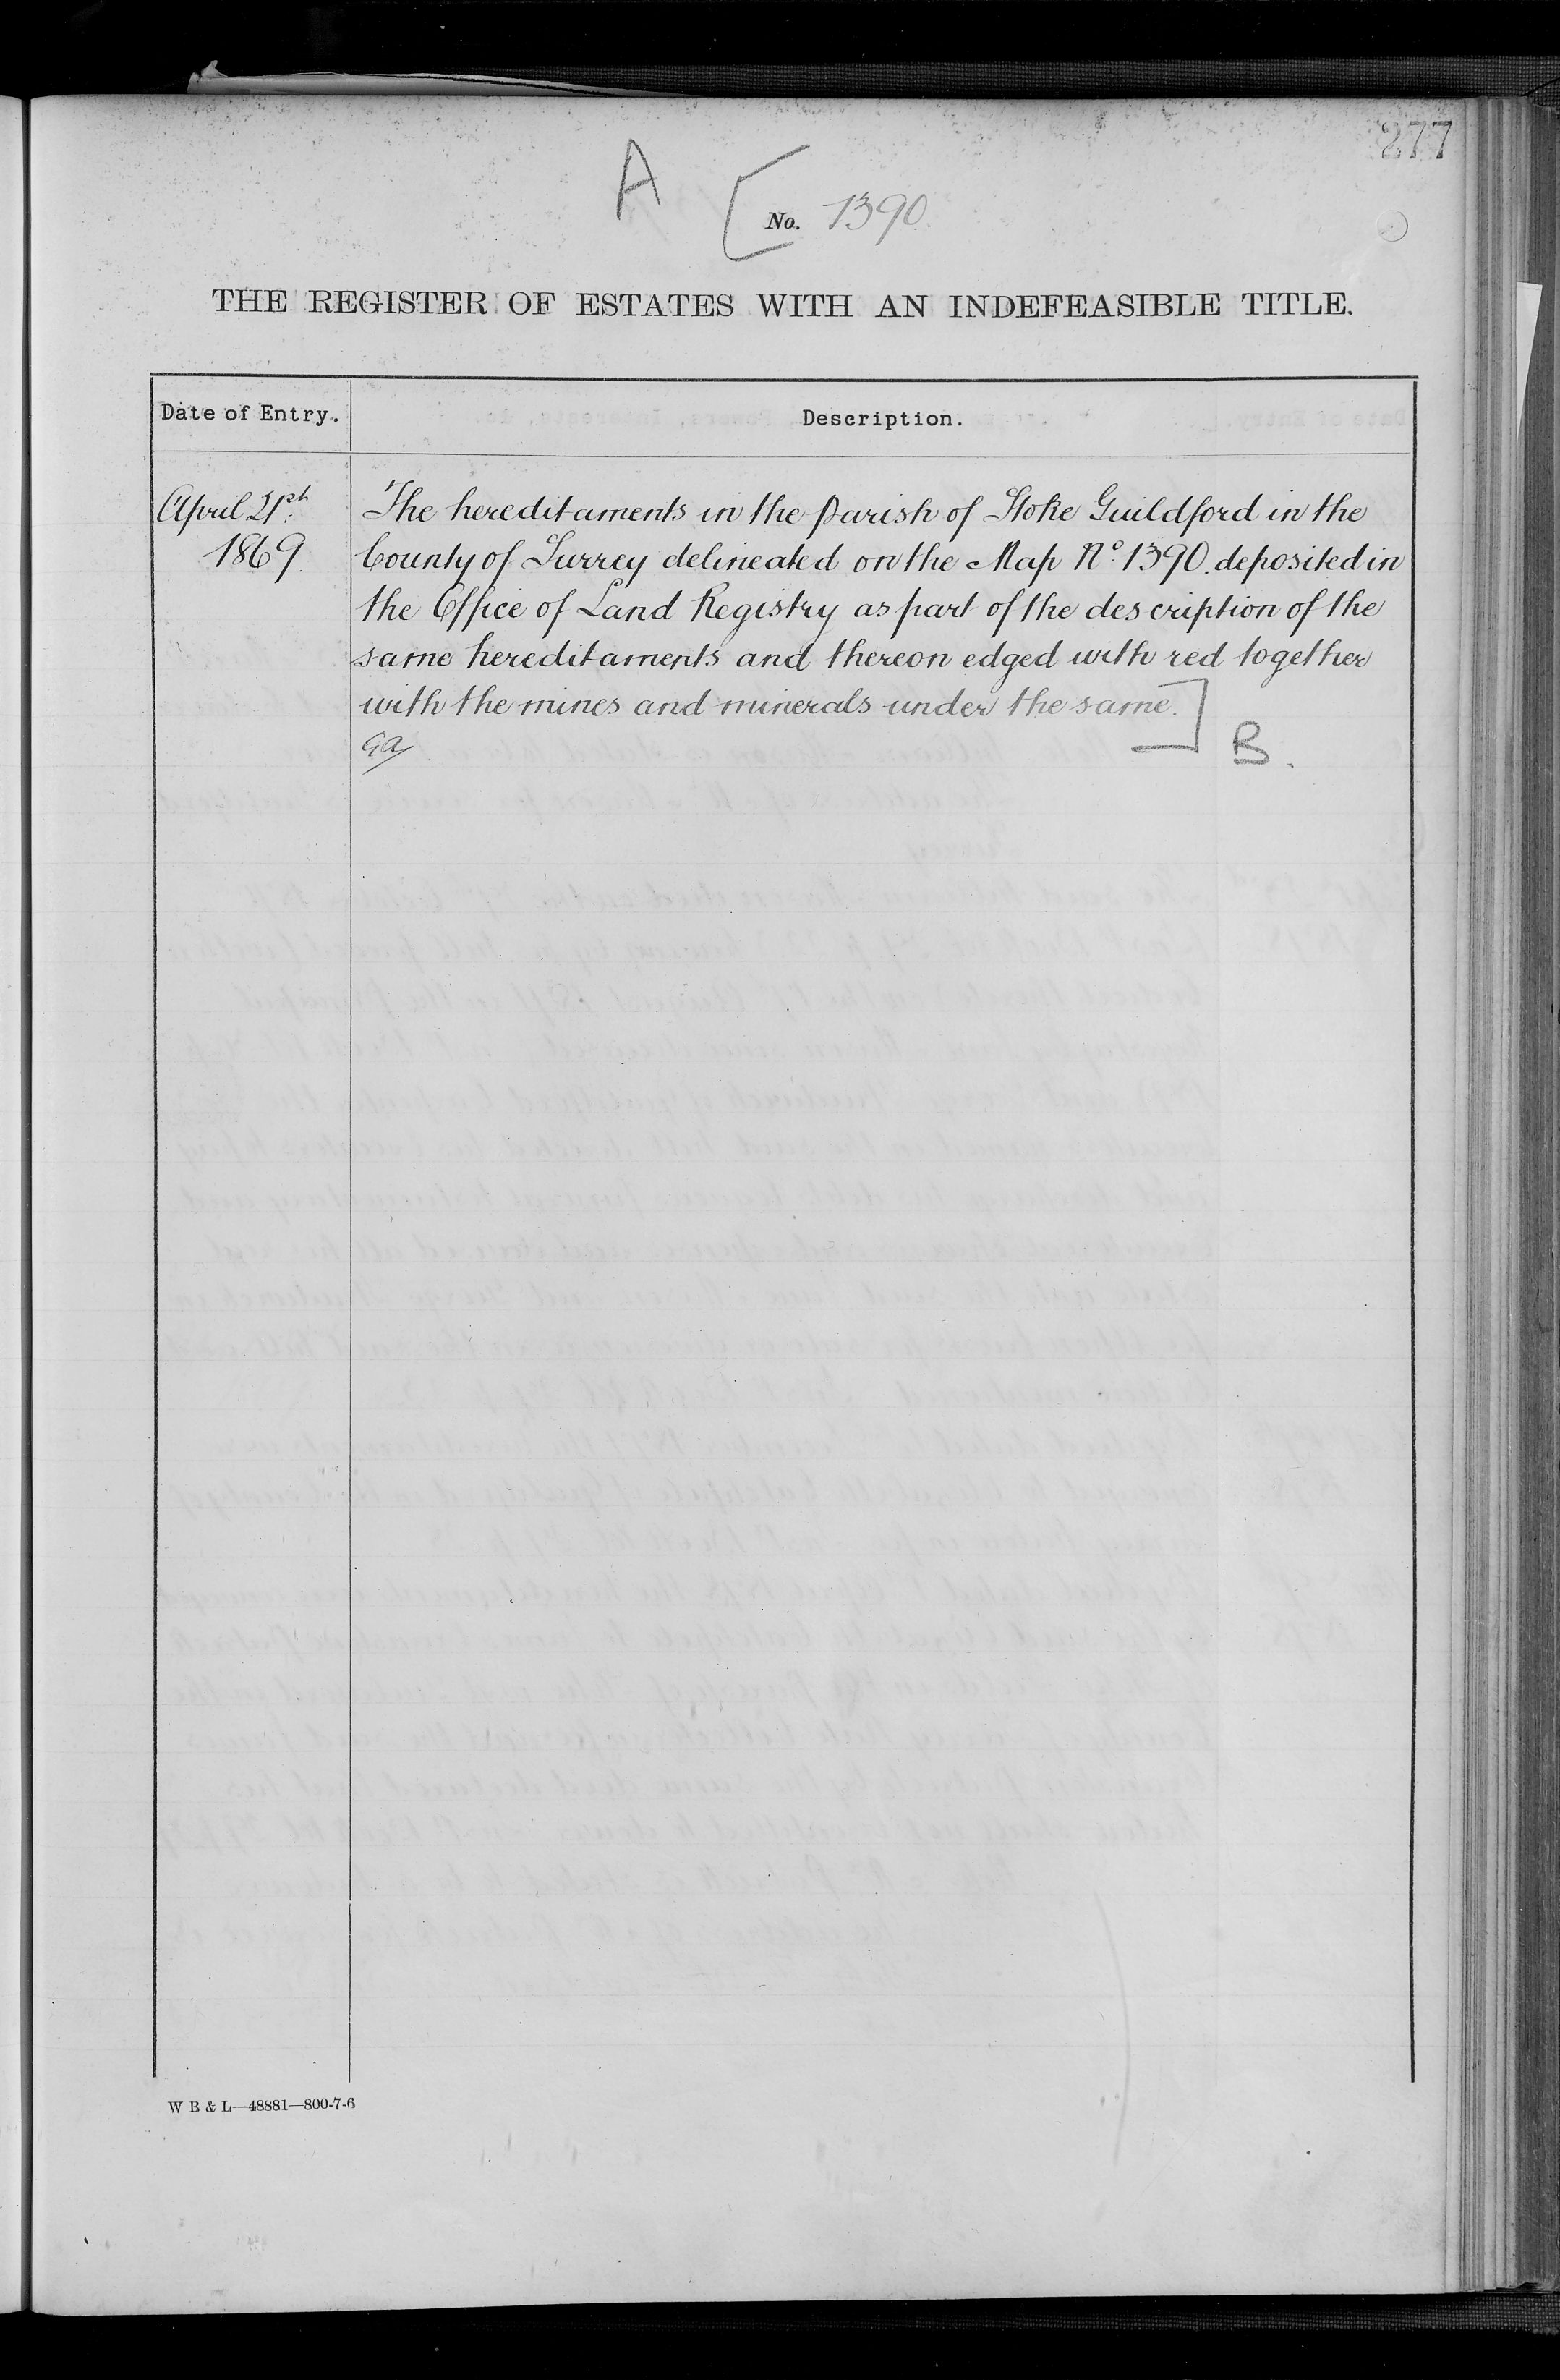 277
A
[ No. 1390.
THE REGISTER OF ESTATES WITH AN INDEFEASIBLE TITLE.
Date of Entry. Description.
April 21st The hereditaments in the parish of Stoke Guildford in the
1869. County of Surrey delineated on the Map No. 1390. deposited in
the Office of Land Registry as part of the description of the
same hereditaments and thereon edged with red together
with the mines and minerals under the same. ]
B.
W B & L—48881—800-7-6